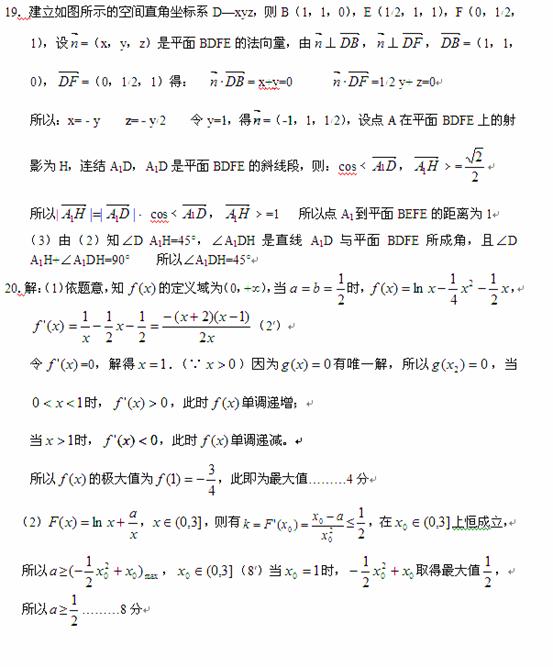 19. 建立如图所示的空间直角坐标系 D—xyz，则 B（1，1，0），E（1/2，1，1），F（0，1/2，
1），设 $\vec{n}$ =（x，y，z）是平面 BDFE 的法向量，由 $\vec{n}\perp\overrightarrow{DB}$，$\vec{n}\perp\overrightarrow{DF}$，$\overrightarrow{DB}$ =（1，1，
0），$\overrightarrow{DF}$ =（0，1/2，1）得： $\vec{n}\cdot\overrightarrow{DB}$ = x+y=0 $\vec{n}\cdot\overrightarrow{DF}$ =1/2 y+ z=0
所以：x= - y z= - y/2 令 y=1，得 $\vec{n}$ =（-1，1，1/2），设点 A 在平面 BDFE 上的射
影为 H，连结 A1D，A1D 是平面 BDFE 的斜线段，则：cos< $\overrightarrow{A_1D}$，$\overrightarrow{A_1H}$ > = $\frac{\sqrt{2}}{2}$
所以| $\overrightarrow{A_1H}$ |=| $\overrightarrow{A_1D}$ |· cos< $\overrightarrow{A_1D}$，$\overrightarrow{A_1H}$ >=1 所以点 A₁到平面 BEFE 的距离为 1
（3）由（2）知∠D A₁H=45°，∠A₁DH 是直线 A₁D 与平面 BDFE 所成角，且∠D
A₁H+∠A₁DH=90° 所以∠A₁DH=45°
20.解:(1)依题意,知 $f(x)$ 的定义域为(0,+∞),当 $a=b=\frac{1}{2}$ 时, $f(x)=\ln x-\frac{1}{4}x^2-\frac{1}{2}x$,
$f'(x)=\frac{1}{x}-\frac{1}{2}x-\frac{1}{2}=\frac{-(x+2)(x-1)}{2x}$（2′）
令 $f'(x)$=0，解得 $x=1$．(∵ $x>0$) 因为 $g(x)=0$ 有唯一解，所以 $g(x_2)=0$，当
$0<x<1$时，$f'(x)>0$，此时 $f(x)$ 单调递增；
当 $x>1$时，$f'(x)<0$，此时 $f(x)$ 单调递减。
所以 $f(x)$ 的极大值为 $f(1)=-\frac{3}{4}$，此即为最大值………4 分
（2）$F(x)=\ln x+\frac{a}{x}$，$x\in(0,3]$，则有 $k=F'(x_0)=\frac{x_0-a}{x_0^2}\le\frac{1}{2}$，在 $x_0\in(0,3]$上恒成立，
所以 $a\ge(-\frac{1}{2}x_0^2+x_0)_{max}$，$x_0\in(0,3]$（8′）当 $x_0=1$时，$-\frac{1}{2}x_0^2+x_0$ 取得最大值 $\frac{1}{2}$，
所以 $a\ge\frac{1}{2}$ ………8 分